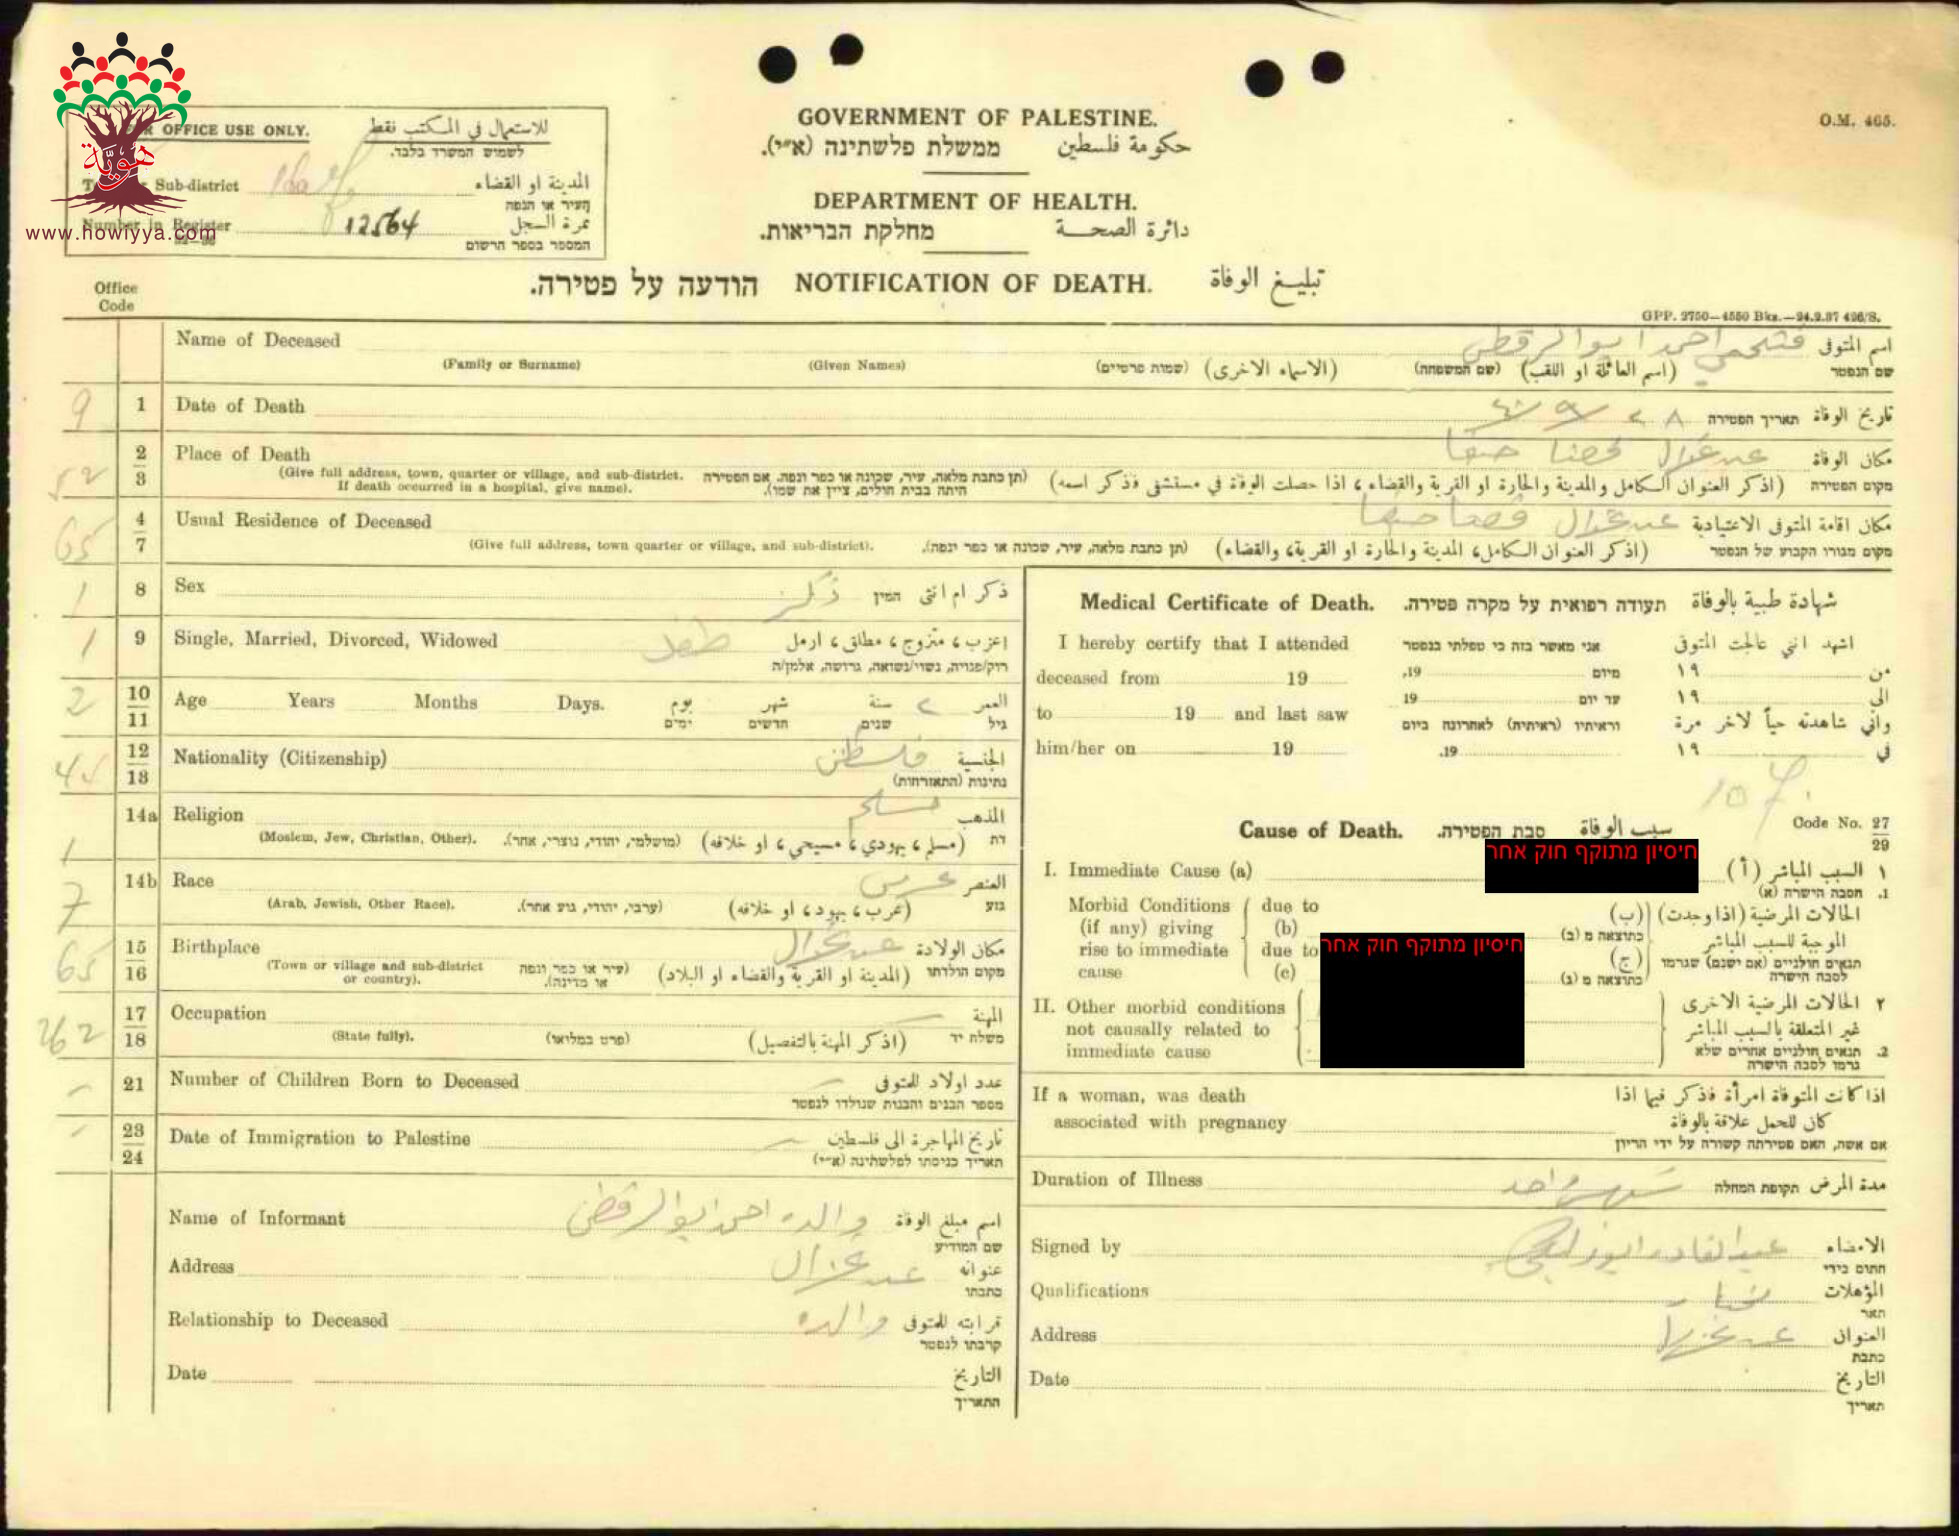 هويّة
www.howiyya.com
FOR OFFICE USE ONLY. للاستعمال في المكتب فقط
לשמוש המשרד בלבד.
Sub-district Haifa المدينة او القضاء
העיר או הנפה
Number in Register 12564 نمرة السجل
המספר בספר הרשום
GOVERNMENT OF PALESTINE.
ממשלת פלשתינה (א״י). حكومة فلسطين
DEPARTMENT OF HEALTH.
מחלקת הבריאות. دائرة الصحة
O.M. 465.
הודעה על פטירה. NOTIFICATION OF DEATH. تبليغ الوفاة
Office Code
GPP. 2750—4550 Bks.—24.2.37 426/S.
Name of Deceased فتحي احمد ابو الرقطي اسم المتوفى
(Family or Surname) (Given Names) (שמות פרטיים) (الاسماء الاخرى) (שם המשפחה) (اسم العائلة او اللقب) שם הנפטר
9 1 Date of Death ٢٨ תאריך הפטירה تاريخ الوفاة
52 2/3 Place of Death عين غزال قضا حيفا مكان الوفاة
(Give full address, town, quarter or village, and sub-district. (תן כתבת מלאה, עיר, שכונה או כפר ונפה. אם הפטירה (اذكر العنوان الكامل والمدينة والحارة او القرية والقضاء، اذا حصلت الوفاة في مستشفى فذكر اسمه) מקום הפטירה
If death occurred in a hospital, give name). היתה בבית חולים, ציין את שמו).
65 4/7 Usual Residence of Deceased عين غزال قضا حيفا مكان اقامة المتوفى الاعتيادية
(Give full address, town quarter or village, and sub-district). (תן כתבת מלאה, עיר, שכונה או כפר ונפה). (اذكر العنوان الكامل، المدينة والحارة او القرية، والقضاء) מקום מגורו הקבוע של הנפטר
1 8 Sex ذكر המין ذكر ام انثى
1 9 Single, Married, Divorced, Widowed طفل اعزب، متزوج، مطلق، ارمل
רוק/פנויה, נשוי/נשואה, גרושה, אלמן/ה
2 10/11 Age Years Months Days. يوم شهر سنة ٢ العمر
ימים חדשים שנים גיל
45 12/13 Nationality (Citizenship) فلسطين الجنسية
נתינות (התאזרחות)
14a Religion مسلم المذهب
1 (Moslem, Jew, Christian, Other). (מושלמי, יהודי, נוצרי, אחר). (مسلم، يهودي، مسيحي، او خلافه) דת
7 14b Race عربي العنصر
(Arab, Jewish, Other Race). (ערבי, יהודי, גזע אחר). (عرب، يهود، او خلافه) גזע
65 15/16 Birthplace عين غزال مكان الولادة
(Town or village and sub-district or country). (עיר או כפר ונפה או מדינה). (المدينة او القرية والقضاء او البلاد) מקום הולדתו
262 17/18 Occupation — المهنة
(State fully). (פרט במלואו) (اذكر المهنة بالتفصيل) משלח יד
– 21 Number of Children Born to Deceased — عدد اولاد للمتوفى
מספר הבנים והבנות שנולדו לנפטר
– 23/24 Date of Immigration to Palestine — تاريخ المهاجرة الى فلسطين
תאריך כניסתו לפלשתינה (א״י)
Name of Informant والده احمد ابو الرقطي اسم مبلغ الوفاة
שם המודיע
Address عين غزال عنوانه
כתבתו
Relationship to Deceased والده قرابته للمتوفى
קרבתו לנפטר
Date التاريخ
התאריך
Medical Certificate of Death. תעודה רפואית על מקרה פטירה. شهادة طبية بالوفاة
I hereby certify that I attended אני מאשר בזה כי טפלתי בנפטר اشهد انني عالجت المتوفى
deceased from 19 19, מיום ١٩ من
to 19 and last saw 19 עד יום ١٩ الى
וראיתיו (ראיתיה) לאחרונה ביום واني شاهدته حياً لآخر مرة
him/her on 19 19. ١٩ في
107
Cause of Death. סבת הפטירה. سبب الوفاة Code No. 27/29
חיסיון מתוקף חוק אחר
I. Immediate Cause (a) السبب المباشر (أ) ١
הסבה הישרה (א) .1
Morbid Conditions due to الحالات المرضية (اذا وجدت) (ب)
(if any) giving (b) כתוצאה מ (ב) الموجبة للسبب المباشر
rise to immediate due to חיסיון מתוקף חוק אחר (ج) תנאים חולניים (אם ישנם) שגרמו
cause (c) כתוצאה מ (ג) לסבה הישרה
II. Other morbid conditions الحالات المرضية الاخرى ٢
not causally related to غير المتعلقة بالسبب المباشر
immediate cause תנאים חולניים אחרים שלא .2
גרמו לסבה הישרה
If a woman, was death اذا كانت المتوفاة امرأة فذكر فيما اذا
associated with pregnancy كان للحمل علاقة بالوفاة
אם אשה, האם פטירתה קשורה על ידי הריון
Duration of Illness شهر واحد תקופת המחלה مدة المرض
Signed by عبد القادر الامضاء
חתום בידי
Qualifications المؤهلات
תאר
Address عين غزال العنوان
כתבת
Date التاريخ
תאריך